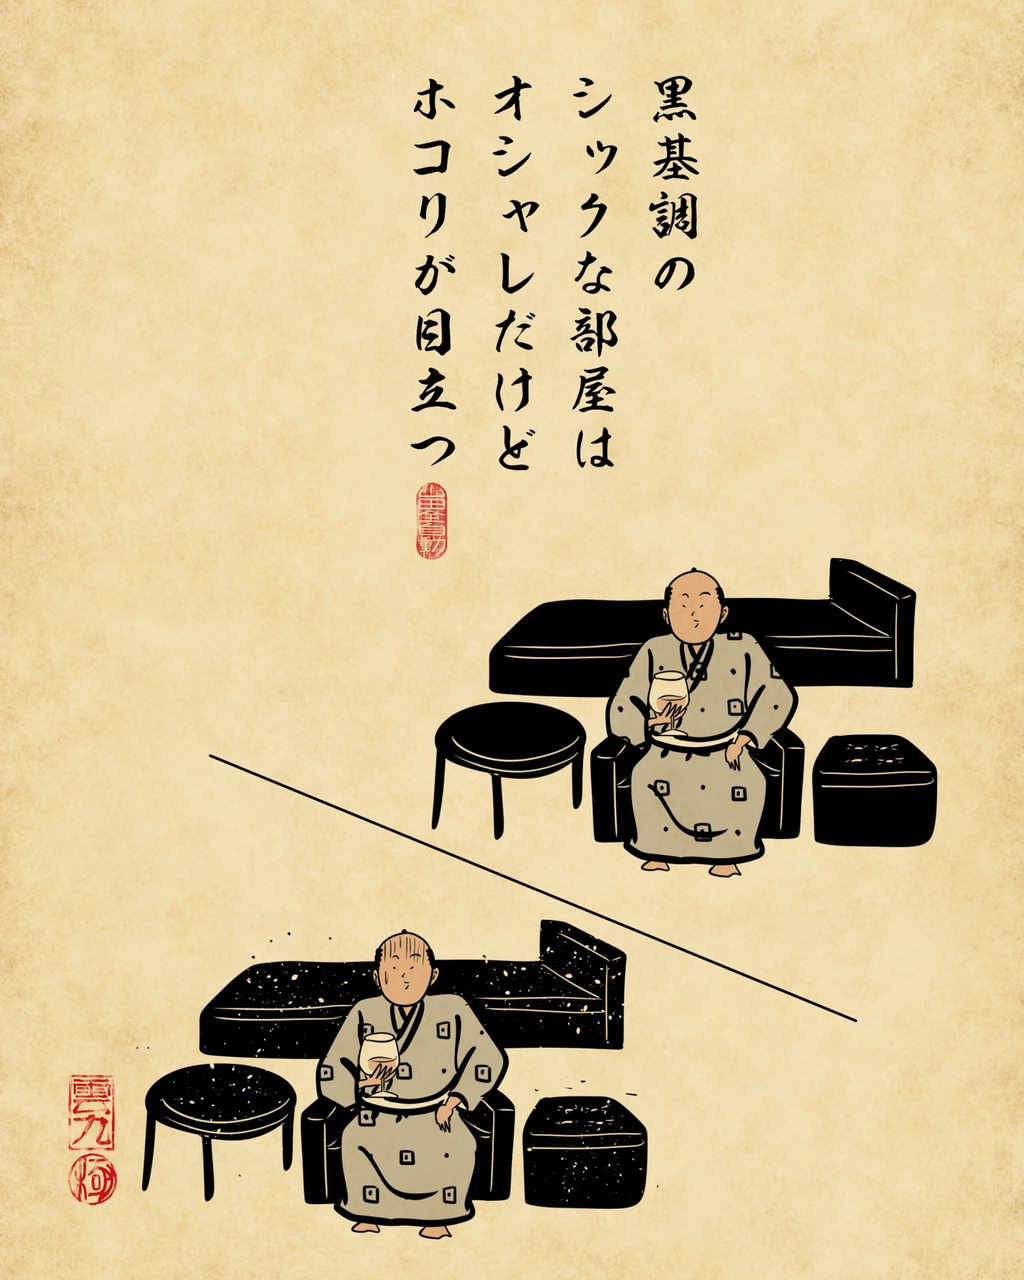 黒基調の
シックな部屋は
オシャレだけど
ホコリが目立つ